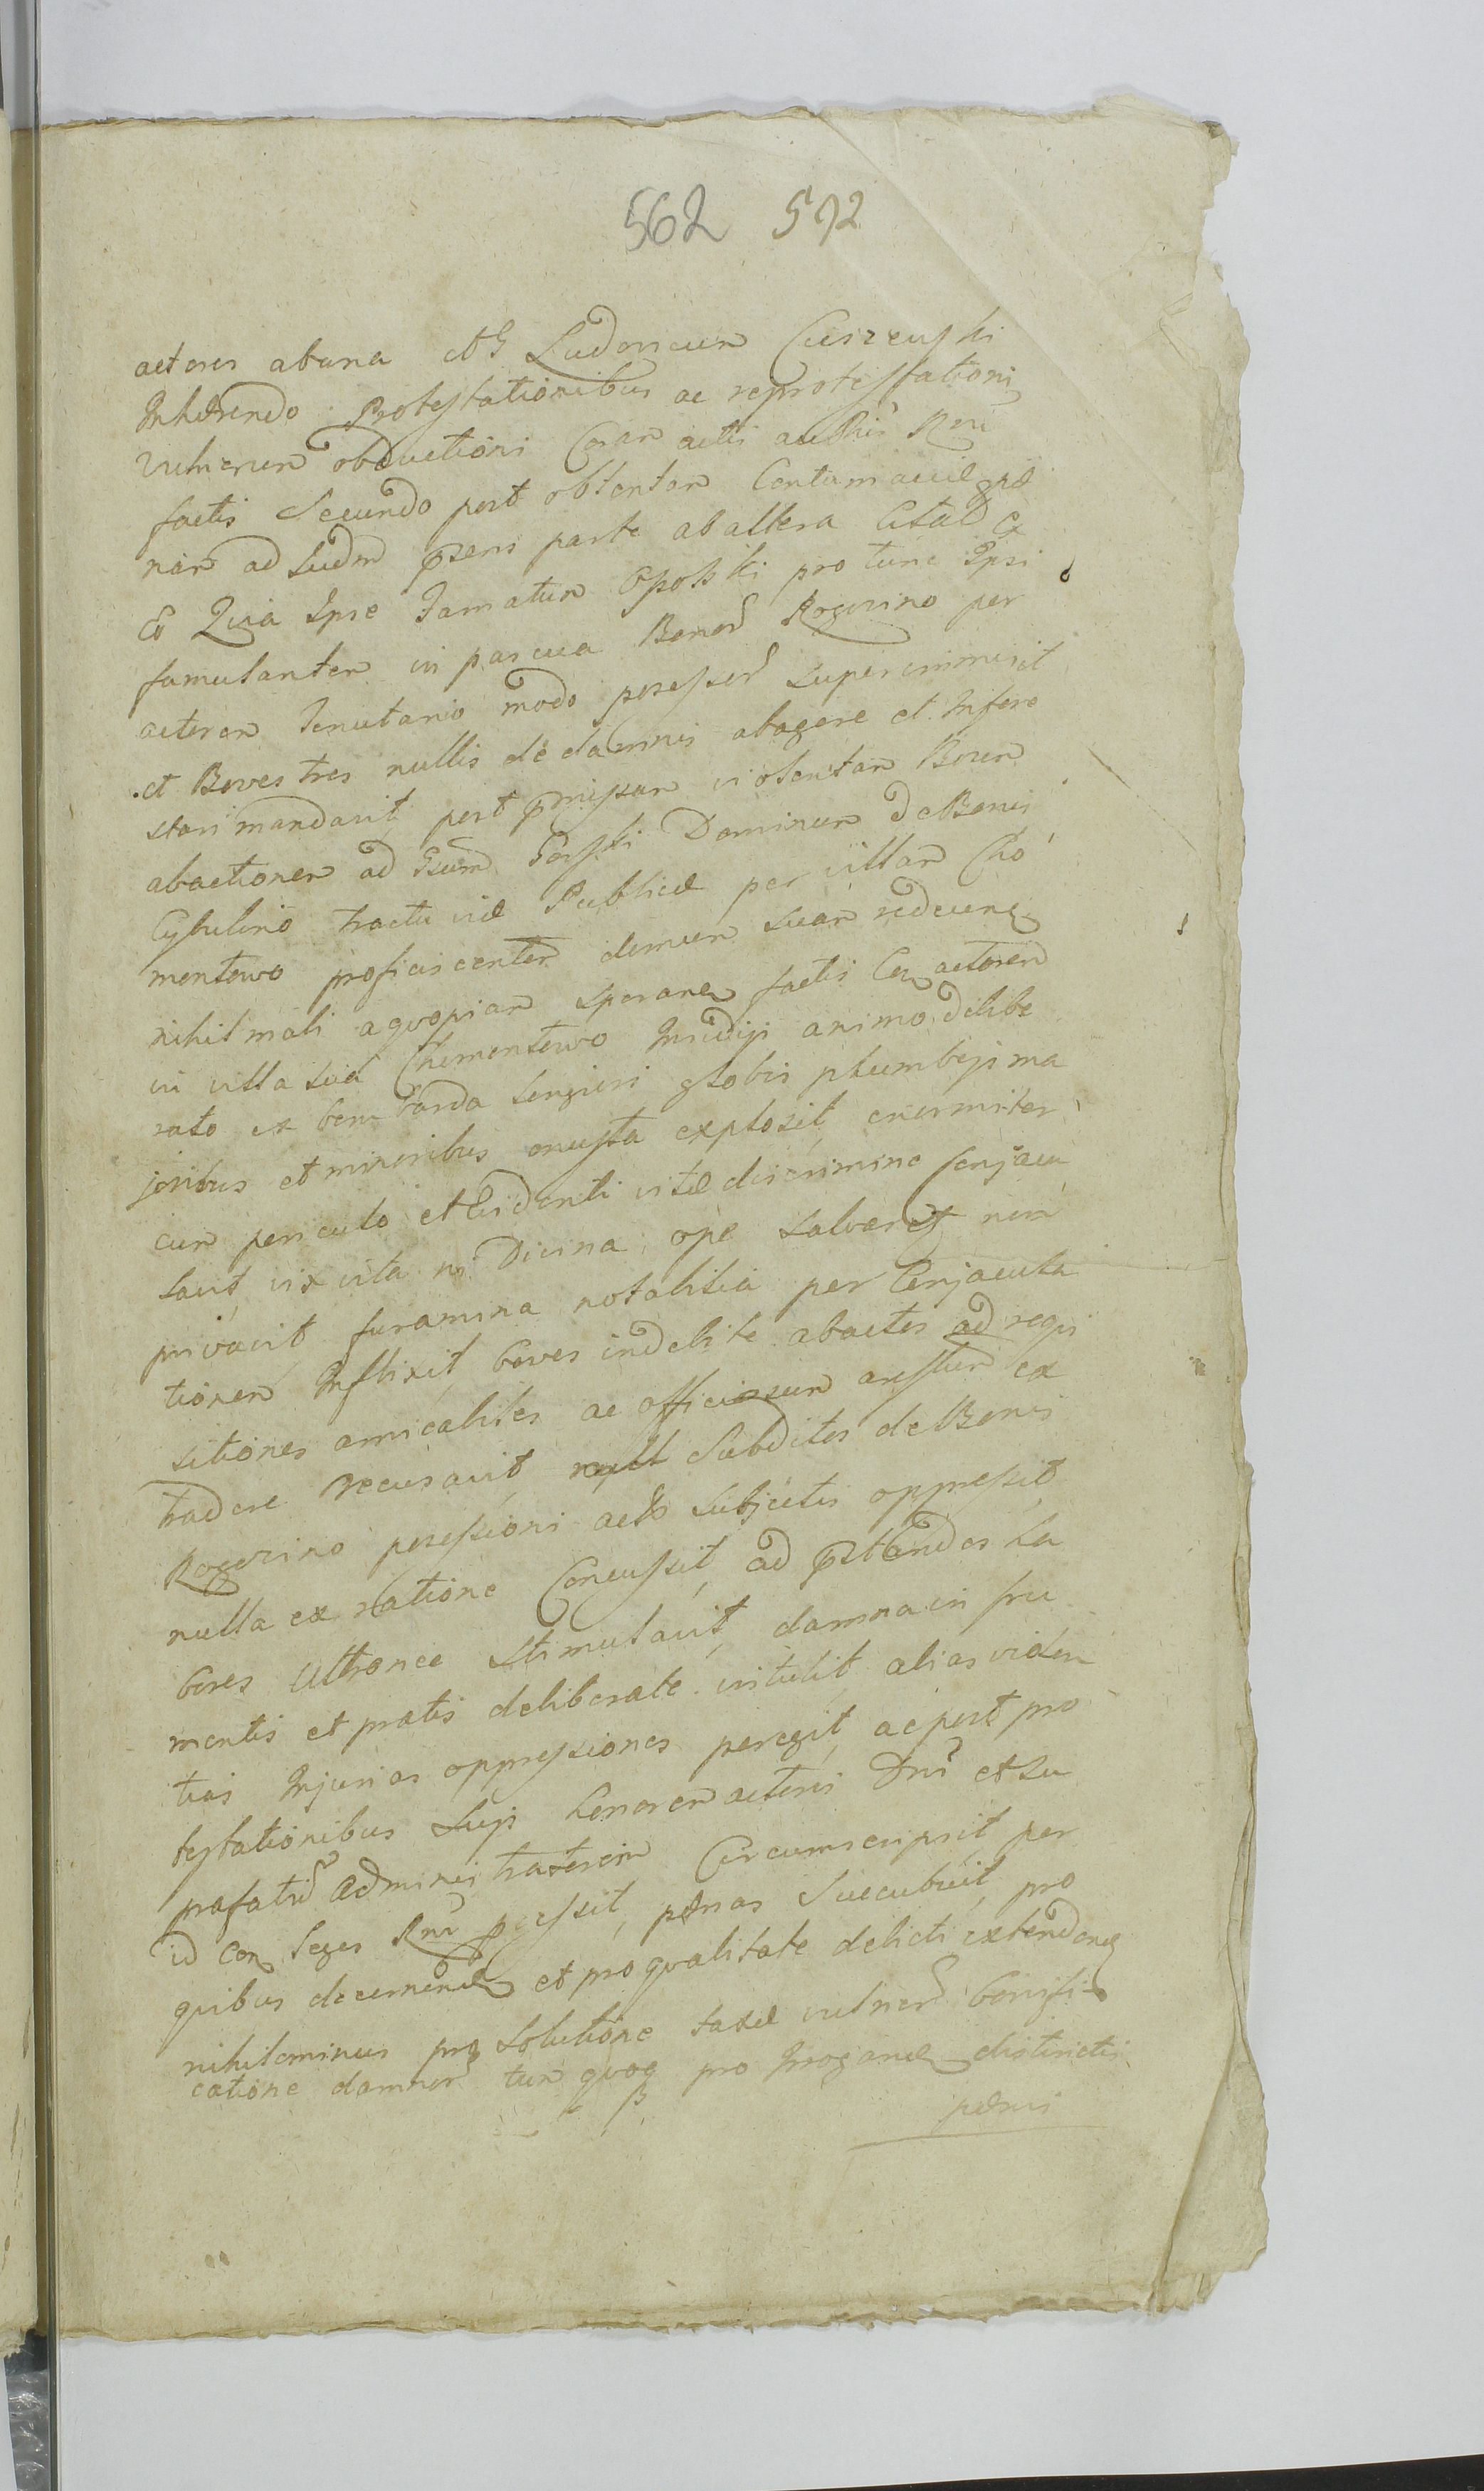 562 592
actores ab una Ludovicum
Inhærendo Protestationibus ac reprotestationi
vulnerum obductioni Coram actis
factis Secundo post obtentam Contumaciæ
nam ad Judm pszens parte ab altera Citat
Eo Quia Ipse Famatum Opolski pro tunc Ipsi
famulantem in pascua Bonor Rogozino per
actorem Tenutario modo possessor superimmisit
et Boves tres nullis de damnis abagere et Infere
stari mandavit, post pmissam violentam Boum
abactionem ad Gsum Dominum de Bonis
Cybulino tractu viæ Publicæ per villam Cho
mentowo proficiscentem domum suam redeunt
nihil mali a quopiam speran factis actorem
in villa sua Chomentowo Insidijs animo delibe
rato ex bombarda longiori globis plumbejs ma
joribus et minoribus onusta explosit, enormiter
cum periculo et Evidenti vitæ discrimine Conjacu
lavit, vix vita ni Divina ope salvaret non
privavit, foramina notabilia per Conjacula
tionem Inflixit, boves indebite abactos ad requi
sitiones amicabiles ac officiosum arestum ex
tradere recusavit, Subditos de Bonis
Rogozino possessioni acto subjectis oppressit
nulla ex ratione Concussit, ad pstandos la
bores Ultronee stimulavit, damna in fru
mentis et pratis deliberate intulit, alias viden
tias Injurias oppressiones peregit, ac post pro
testationibus Sujs honorem actoris Dni et su
prafatu Administratorem Circumscripsit, per
id Con Leges Rni pcessit, pænas Succubuit, pro
quibus decernend et pro qualitate delicti extendend
nihilominus pro solutione taxæ vulner bonifi
catione damnor tum quoq pro Irrogand districtis
pænis